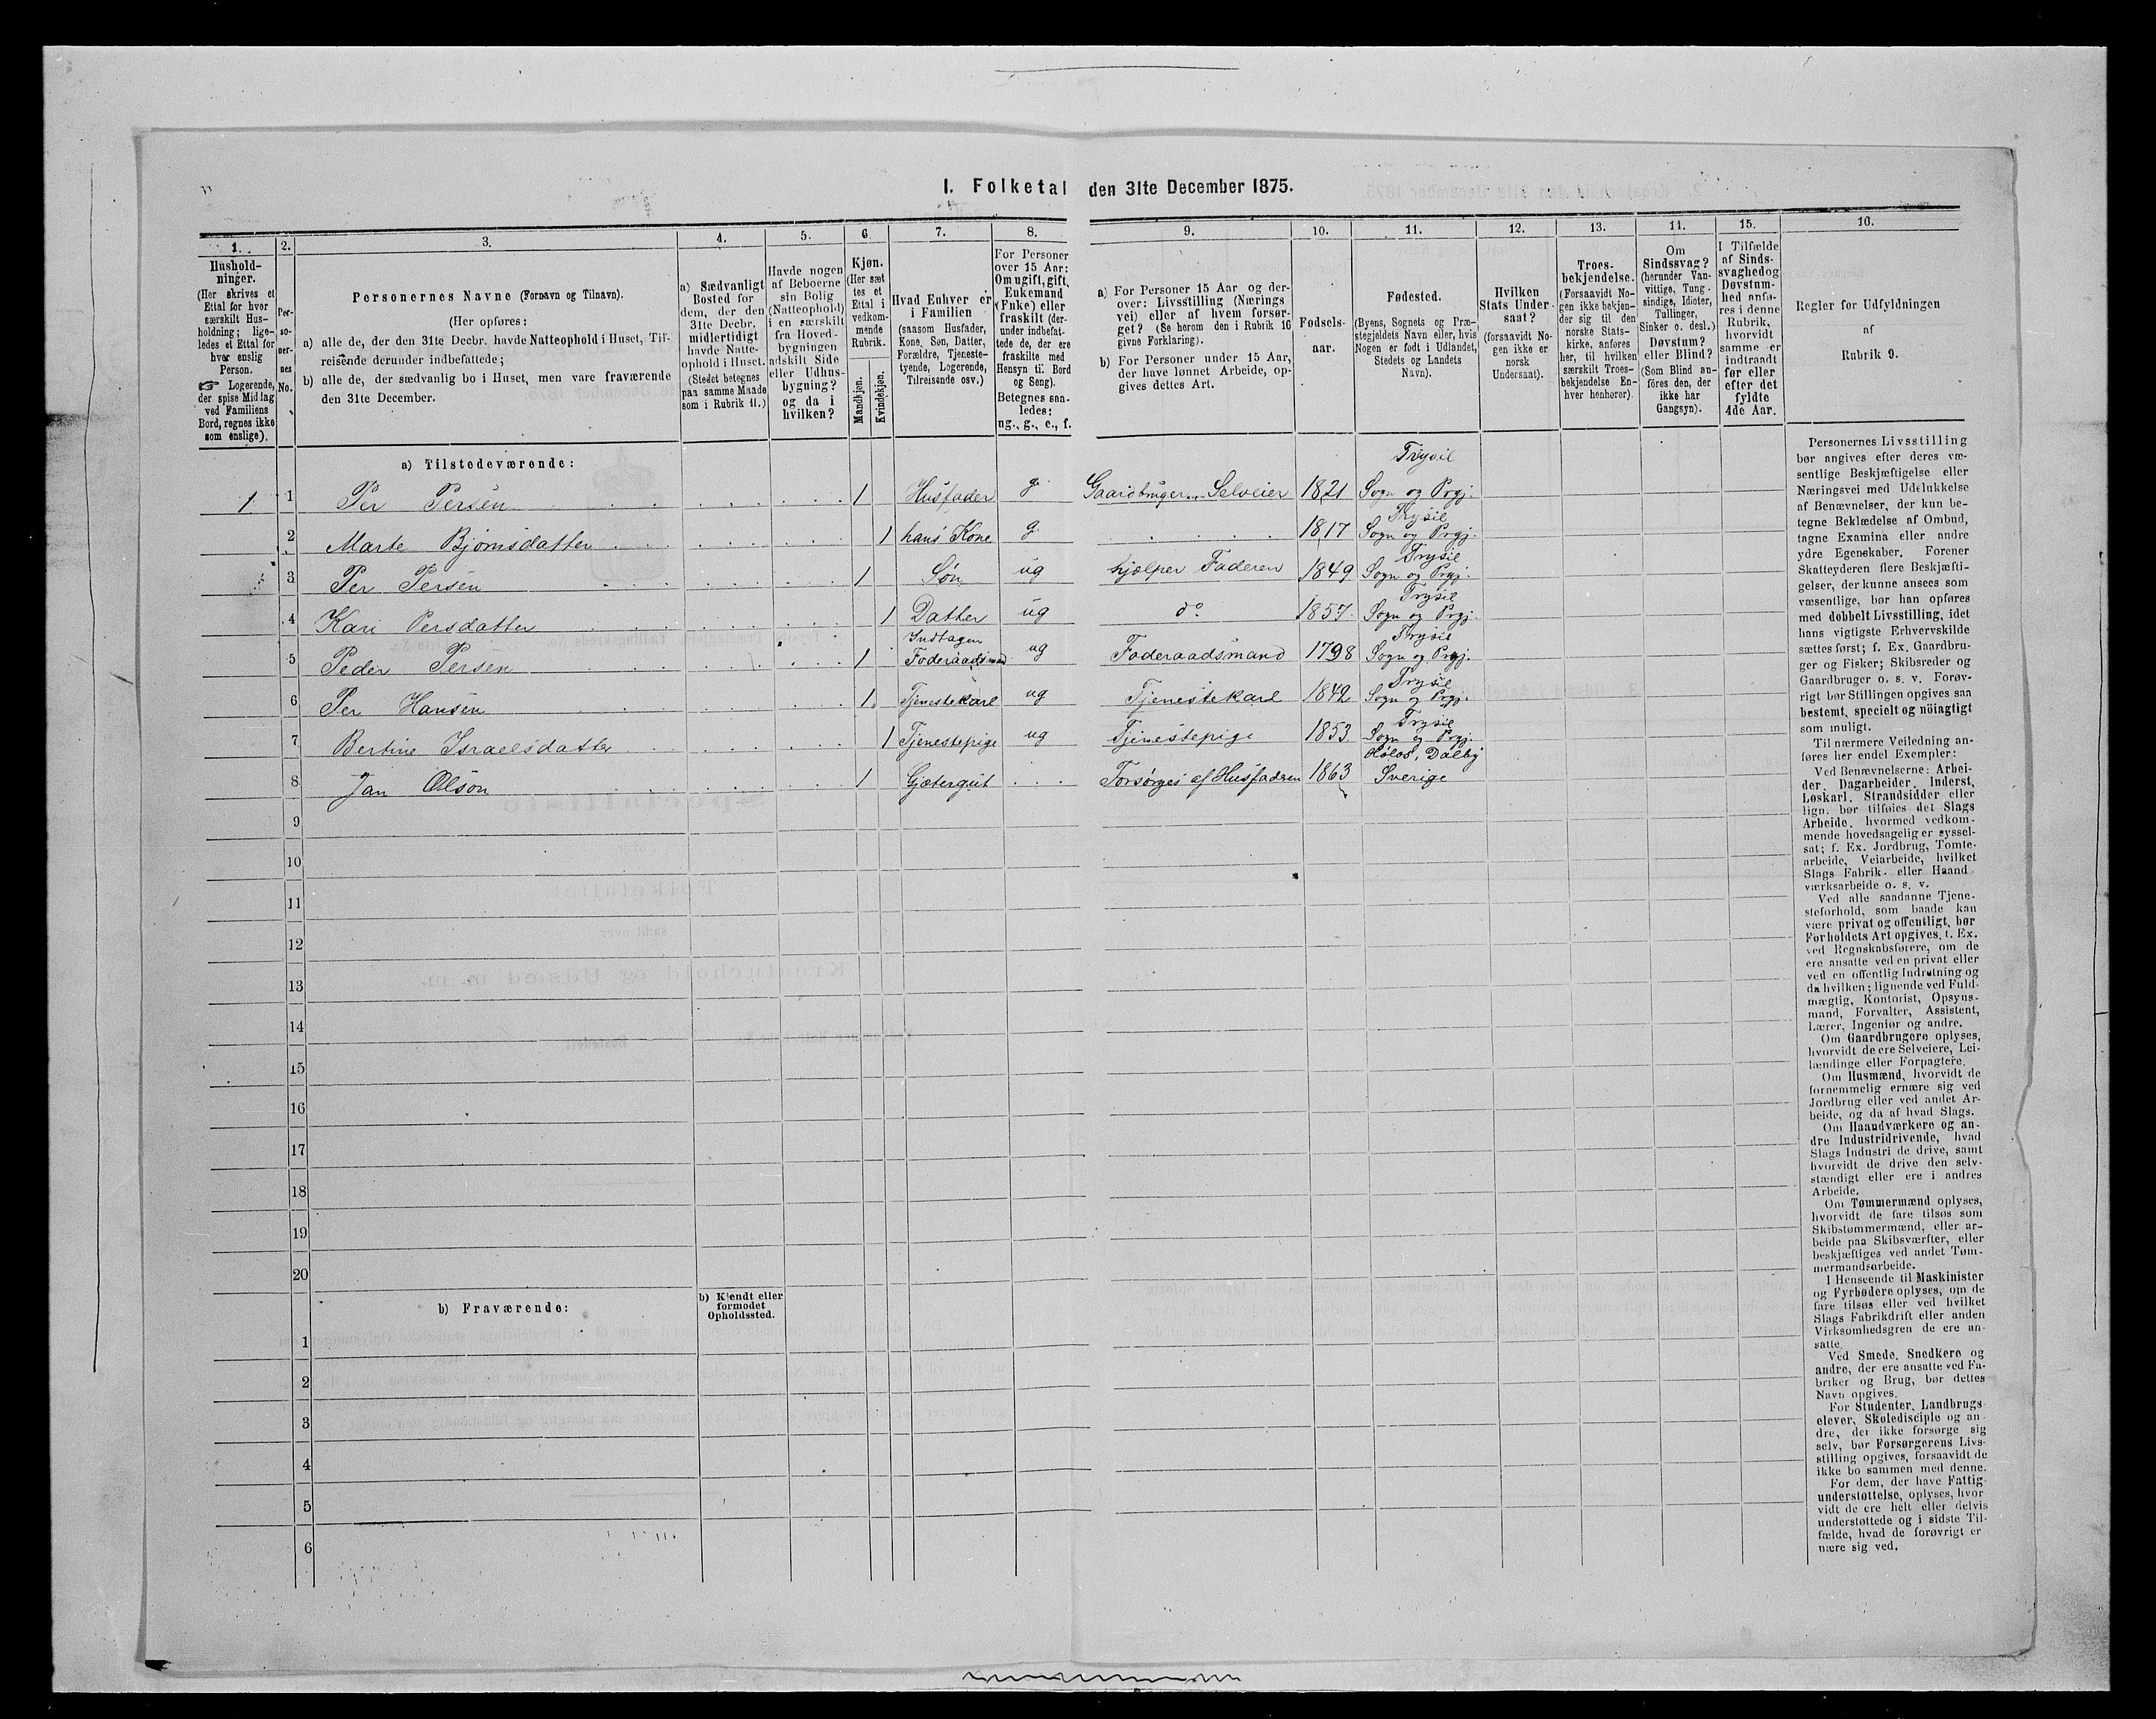 I. Folketal den 31te December 1875.
1.
2.
3.
4.
5.
6.
7.
8.
9.
10.
11.
12.
13.
11.
15.
16.
Hushold-
ninger.
(Her skrives et
Ettal for hver
særskilt Hus-
holdning; lige-
ledes et Ettal for
hver enslig
Person.
☞ Logerende,
der spise Middag
ved Familiens
Bord, regnes ikke
som enslige).
Per-
so-
ner-
nes
No.
Personernes Navne (Fornavn og Tilnavn).
(Her opføres:
a) alle de, der den 31te Decbr. havde Natteophold i Huset, Til-
reisende derunder indbefattede;
b) alle de, der sædvanlig bo i Huset, men vare fraværende
den 31te December.
a) Sædvanligt
Bosted for
dem, der den
31te Decbr.
midlertidigt
havde Natte-
ophold i Huset.
(Stedet betegnes
paa samme Maade
som i Rubrik 11.)
Havde nogen
af Beboerne
sin Bolig
(Natteophold)
i en særskilt
fra Hoved-
bygningen
adskilt Side
eller Udhus-
bygning?
og da i
hvilken?
Kjøn.
(Her sæt
tes et
Ettal i
vedkom-
mende
Rubrik.
Mandkjøn.
Kvindekjøn.
Hvad Enhver er
i Familien
(saasom Husfader,
Kone, Søn, Datter,
Forældre, Tjeneste-
tyende, Logerende,
Tilreisende osv.)
For Personer
over 15 Aar:
Om ugift, gift,
Enkemand
(Enke) eller
fraskilt (der-
under indbefat-
tede de, der ere
fraskilte med
Hensyn til Bord
og Seng).
Betegnes saa-
ledes:
ug., g., e., f.
a) For Personer 15 Aar og der-
over: Livsstilling (Nærings
vei) eller af hvem forsør-
get? (Se herom den i Rubrik 16
givne Forklaring).
b) For Personer under 15 Aar,
der have lønnet Arbeide, op-
gives dettes Art.
Fødsels-
aar.
Fødested.
(Byens, Sognets og Præ-
stegjeldets Navn eller, hvis
Nogen er født i Udlandet,
Stedets og Landets
Navn).
Hvilken
Stats Under-
saat?
(forsaavidt No-
gen ikke er
norsk
Undersaat).
Troes-
bekjendelse.
(Forsaavidt No-
gen ikke bekjen-
der sig til den
norske Stats-
kirke, anføres
her, til hvilken
særskilt Troes-
bekjendelse En-
hver henhører).
Om
Sindssvag?
(herunder Van-
vittige, Tung-
sindige, Idioter,
Tullinger,
Sinker o. desl.)
Døvstum?
eller Blind?
(Som Blind an-
føres den, der
ikke har
Gangsyn).
I Tilfælde
af Sinds-
svaghed og
Døvstum-
hed anfø-
res i denne
Rubrik,
hvorvidt
samme er
indtraadt
før eller
efter det
fyldte
4de Aar.
Regler for Udfyldningen
af
Rubrik 9.
a) Tilstedeværende:
Trysil
1 1 Per Persen 1 Husfader g. Gaardbruger Selveier 1821 Sogn og Prgj.
Trysil
2 Marte Bjørnsdatter 1 hans Kone g. 1817 Sogn og Prgj.
Trysil
3 Per Persen 1 Søn ug hjælper Faderen 1849 Sogn og Prgj.
Trysil
4 Kari Persdatter 1 Datter ug do 1857 Sogn og Prgj.
Indtagen Trysil
5 Peder Persen 1 Foderaadsmand ug Foderaadsmand 1798 Sogn og Prgj.
Trysil
6 Per Hansen 1 Tjenestekarl ug Tjenestekarl 1842 Sogn og Prgj.
Trysil
7 Bertine Israelsdatter 1 Tjenestepige ug Tjenestepige 1853 Sogn og Prgj.
Dalby
8 Jan Olson 1 Gjætergut Forsørges af Husfaderen 1863 Sverige
9
10
11
12
13
14
15
16
17
18
19
20
b) Fraværende:
b) Kjendt eller
formodet
Opholdssted.
1
2
3
4
5
6
Personernes Livsstilling
bør angives efter deres væ-
sentlige Beskjæftigelse eller
Næringsvei med Udelukkelse
af Benævnelser, der kun be-
tegne Beklædelse af Ombud,
tagne Examina eller andre
ydre Egenskaber. Forener
Skatteyderen flere Beskjæfti-
gelser, der kunne ansees som
væsentlige, bør han opføres
med dobbelt Livsstilling, idet
hans vigtigste Erhvervskilde
sættes først; f. Ex. Gaardbru-
ger og Fisker; Skibsreder og
Gaardbruger o. s. v. Forøv-
rigt bør Stillingen opgives saa
bestemt, specielt og nöiagtigt
som muligt.
Til nærmere Veiledning an-
føres her endel Exempler:
Ved Benævnelserne: Arbei-
der, Dagarbeider, Inderst,
Løskarl, Strandsidder eller
lign. bør tilføies det Slags
Arbeide, hvormed vedkom-
mende hovedsagelig er syssel-
sat; f. Ex. Jordbrug, Tomte-
arbeide, Veiarbeide, hvilket
Slags Fabrik- eller Haand-
værksarbeide o. s. v.
Ved alle saadanne Tjene-
steforhold, som baade kan
være privat og offentligt, bør
Forholdets Art opgives, t. Ex.
ved Regnskabsførere, om de
ere ansatte ved en privat eller
ved en offentlig Indretning og
da hvilken; lignende ved Fuld-
mægtig, Kontorist, Opsyns-
mand, Forvalter, Assistent,
Lærer, Ingeniør og andre.
Om Gaardbrugere oplyses,
hvorvidt de ere Selveiere, Lei-
lændinge eller Forpagtere.
Om Husmænd, hvorvidt de
fornemmelig ernære sig ved
Jordbrug eller ved andet Ar-
beide, og da af hvad Slags.
Om Haandværkere og an-
dre Industridrivende, hvad
Slags Industri de drive, samt
hvorvidt de drive den selv-
stændigt eller ere i andres
Arbeide.
Om Tømmermænd oplyses,
hvorvidt de fare tilsøs som
Skibstømmermænd, eller ar-
beide paa Skibsværfter, eller
beskjæftiges ved andet Tøm-
mermandsarbeide.
I Henseende til Maskinister
og Fyrbødere oplyses, om de
fare tilsøs eller ved hvilket
Slags Fabrikdrift eller anden
Virksomhedsgren de ere an-
satte.
Ved Smede, Snedkere og
andre, der ere ansatte ved Fa-
briker og Brug, bør dettes
Navn opgives.
For Studenter, Landbrugs-
elever, Skoledisciple og an-
dre, der ikke forsørge sig
selv, bør Forsørgerens Livs-
stilling opgives, forsaavidt de
ikke bo sammen med denne.
For dem, der have Fattig-
understøttelse, oplyses, hvor
vidt de ere helt eller delvis
understøttede og i sidste Til-
fælde, hvad de forøvrigt er
nære sig ved.